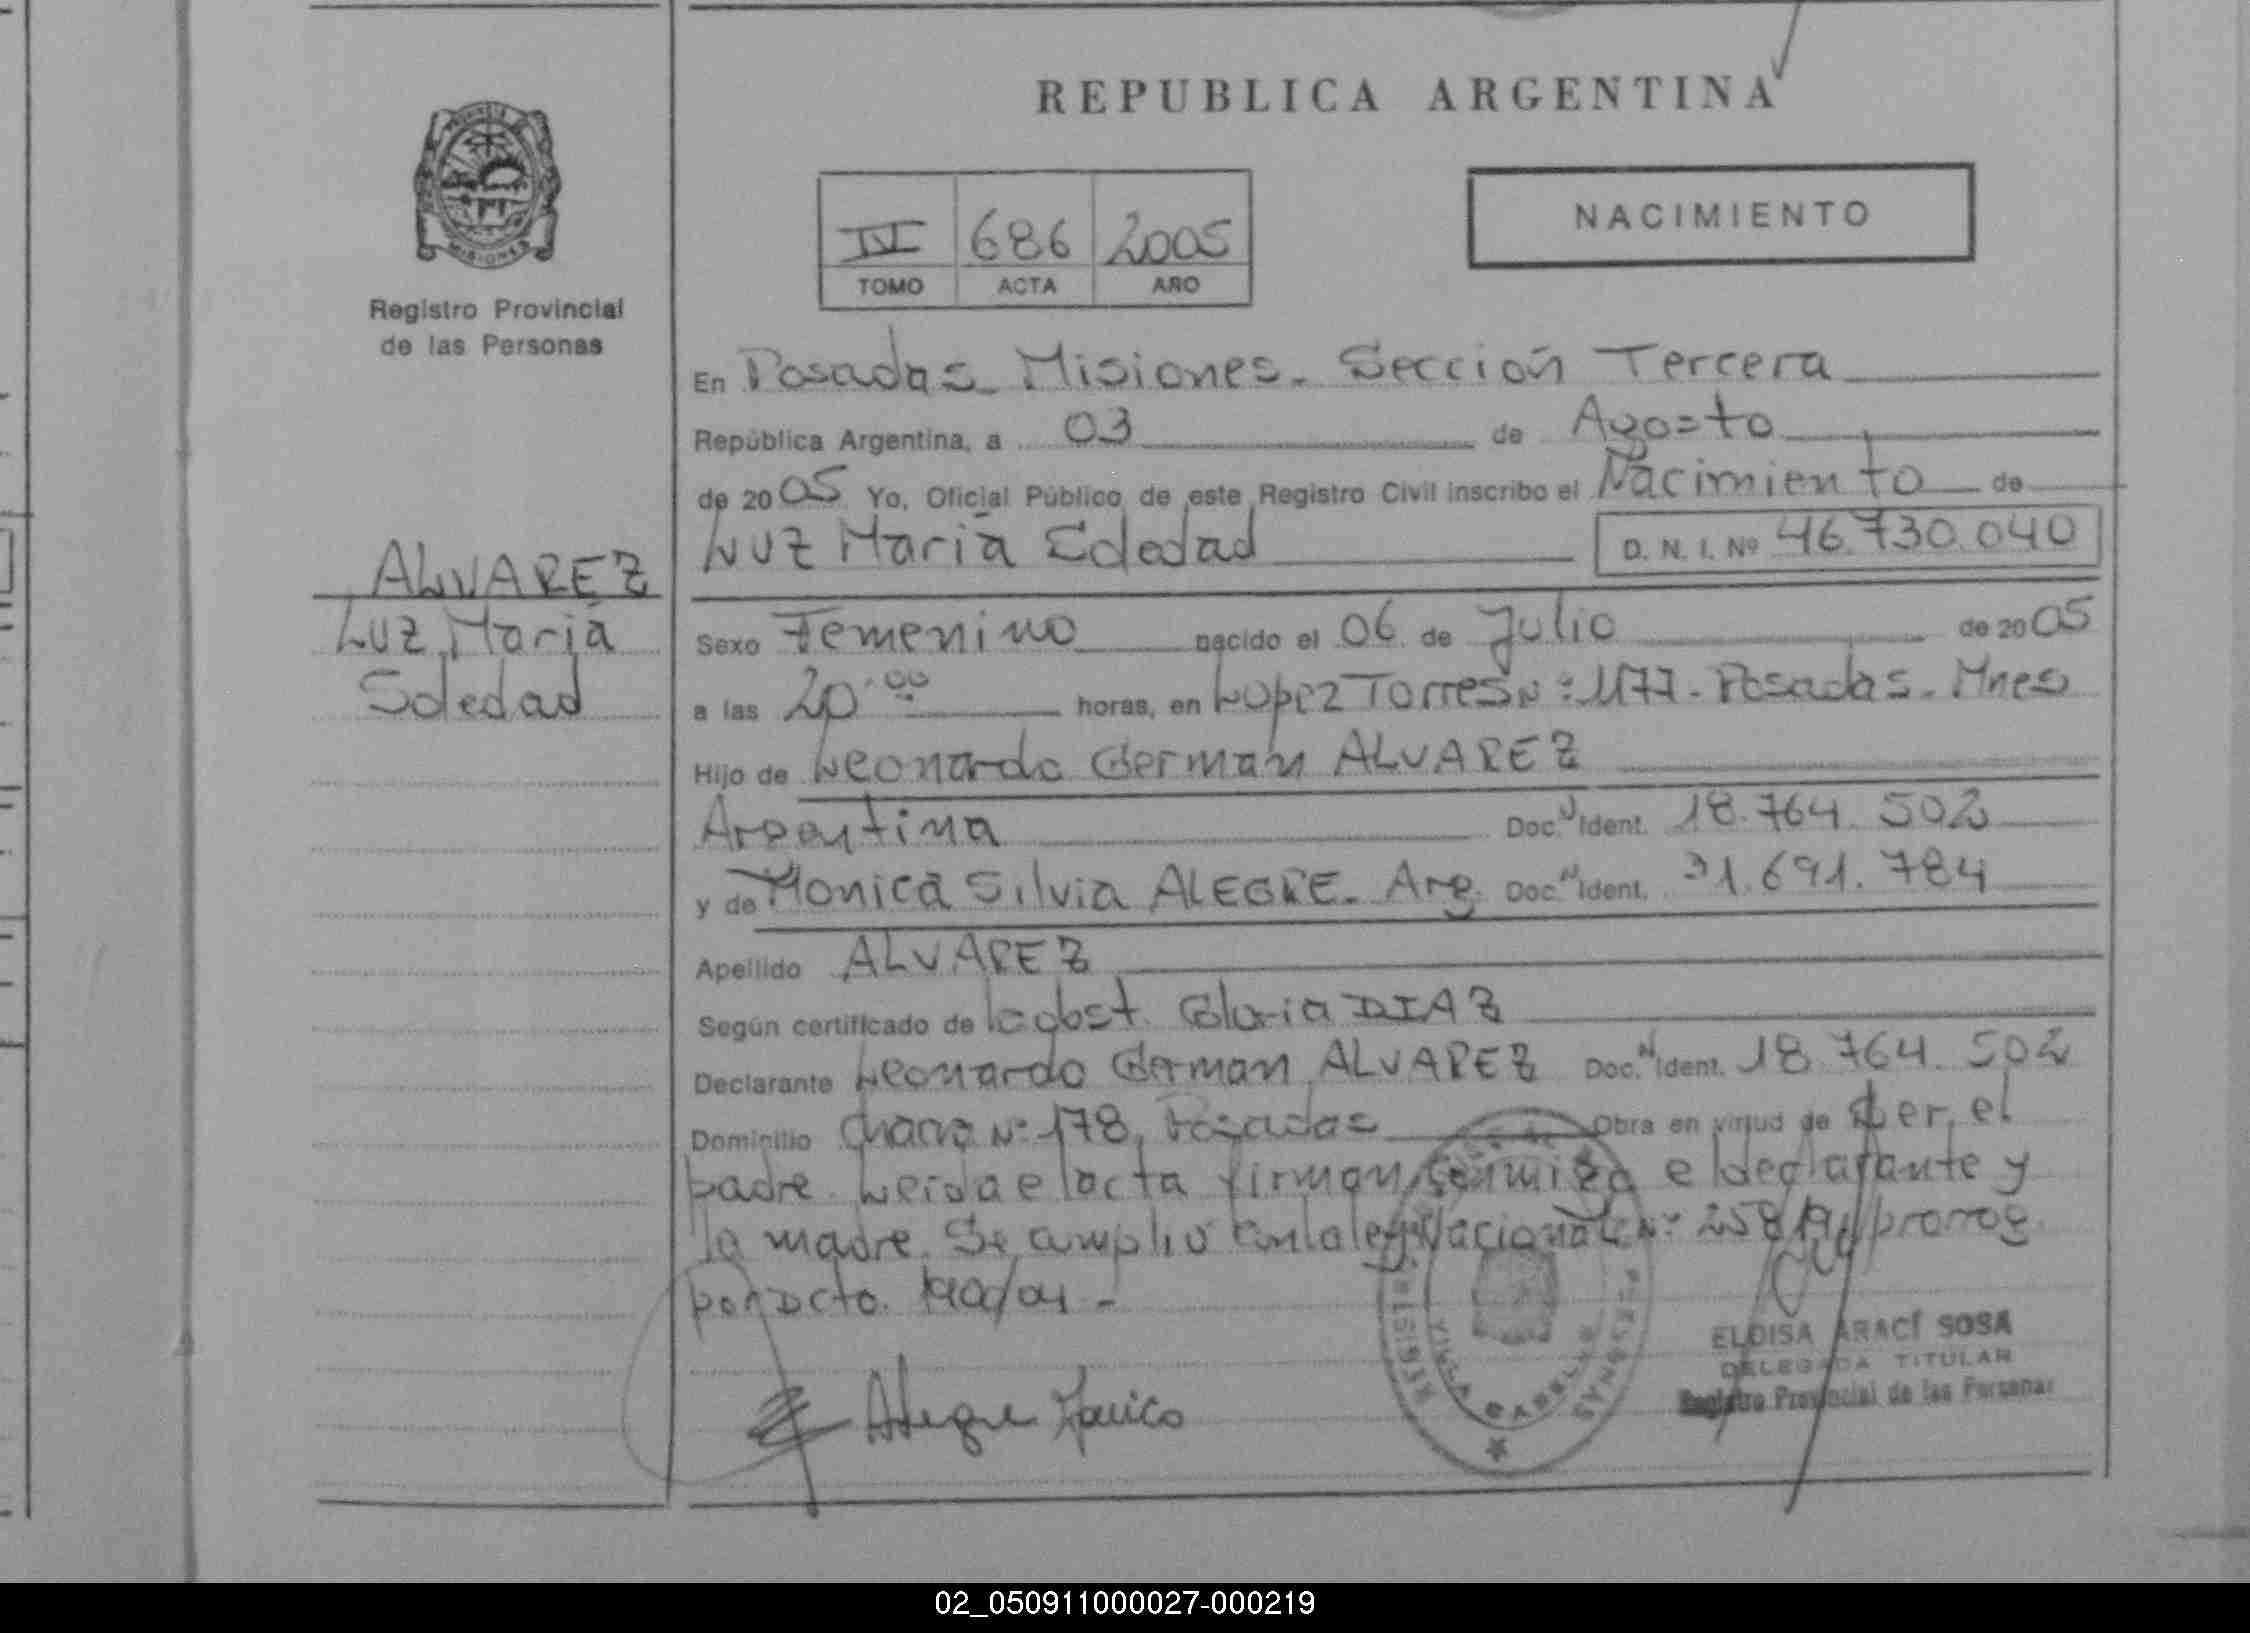 REPUBLICA ARGENTINA
NACIMIENTO
IV 686 2005
TOMO ACTA AÑO
Registro Provincial
de las Personas
ALVAREZ
Luz María
Soledad
En Posadas Misiones. Sección Tercera
República Argentina, a 03 de Agosto
de 2005 Yo, Oficial Público de este Registro Civil inscribo el Nacimiento de
Luz María Soledad D. N. I. Nº 46.730.040
Sexo Femenino nacido el 06 de Julio de 2005
a las 20,00 horas, en Lopez Torres Nº: 1177. Posadas. Mnes
Hijo de Leonardo German ALVAREZ
Argentina Doc. N Ident. 18.764.502
y de Monica Silvia ALEGRE. Arg. Doc. N Ident. 31.691.784
Apellido ALVAREZ
Según certificado de la obst. Gloria DIAZ
Declarante Leonardo German ALVAREZ Doc. N Ident. 18.764.502
Domicilio Nº 178, Posadas Obra en virtud de Ser el
padre. Leida el acta firman conmigo el declarante y
la madre. Se amplió con la ley Nacional Nº: prorrog.
por Dcto.
Alegre Monica
VILLA CABELLO
ELOISA ARACÍ SOSA
DELEGADA TITULAR
Registro Provincial de las Personas
MISIONES
02_050911000027-000219